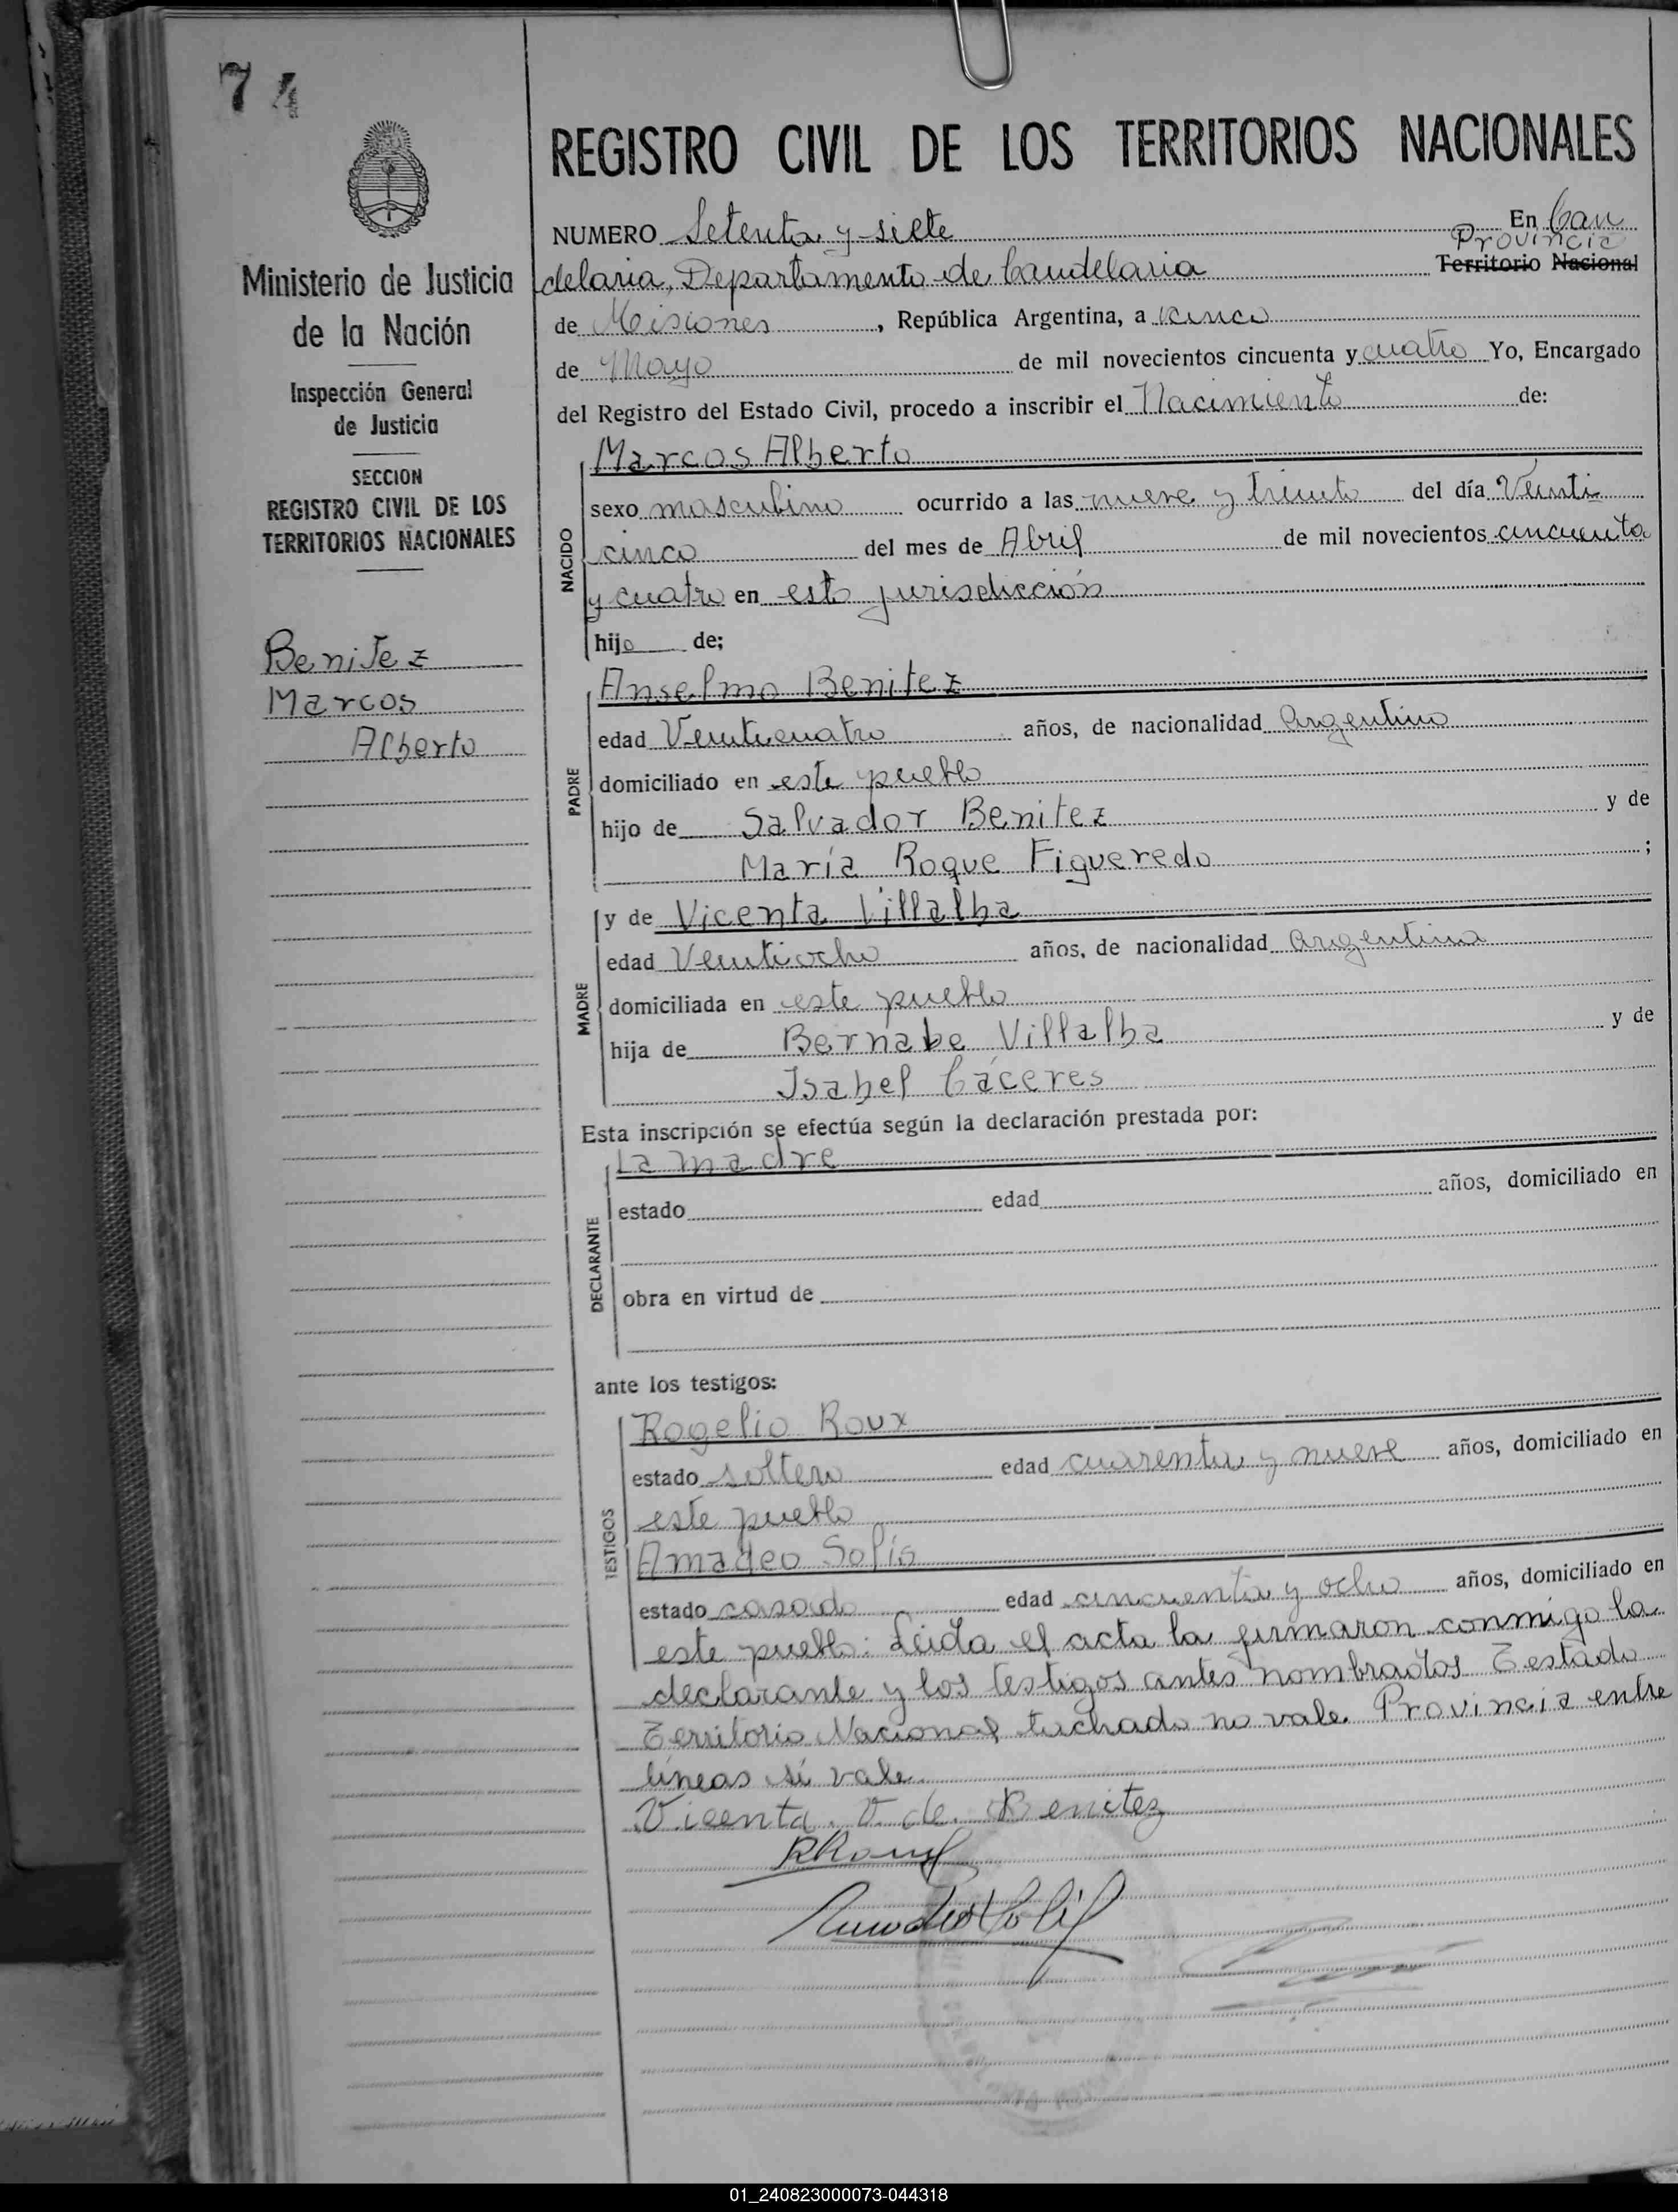 74
REGISTRO CIVIL DE LOS TERRITORIOS NACIONALES
Ministerio de Justicia
de la Nación
Inspección General
de Justicia
SECCION
REGISTRO CIVIL DE LOS
TERRITORIOS NACIONALES
Benitez
Marcos
Alberto
NUMERO Setenta y siete En Can
Provincia
delaria, Departamento de Candelaria Territorio Nacional
de Misiones, República Argentina, a cinco
de Mayo de mil novecientos cincuenta y cuatro Yo, Encargado
del Registro del Estado Civil, procedo a inscribir el Nacimiento de:
NACIDO
Marcos Alberto
sexo masculino ocurrido a las nueve y treinta del día Veinti
cinco del mes de Abril de mil novecientos cincuenta
y cuatro en esta jurisdicción
hijo de;
PADRE
Anselmo Benitez
edad Veinticuatro años, de nacionalidad Argentino
domiciliado en este pueblo
hijo de Salvador Benitez y de
María Roque Figueredo ;
MADRE
y de Vicenta Villalba
edad Veintiocho años, de nacionalidad argentina
domiciliada en este pueblo
hija de Bernabe Villalba y de
Isabel Cáceres
Esta inscripción se efectúa según la declaración prestada por:
DECLARANTE
La madre
estado edad años, domiciliado en
obra en virtud de
ante los testigos:
TESTIGOS
Rogelio Roux
estado soltero edad cuarenta y nueve años, domiciliado en
este pueblo
Amadeo Solís
estado casado edad cincuenta y ocho años, domiciliado en
este pueblo: Leída el acta la firmaron conmigo la
declarante y los testigos antes nombrados Testado
Territorio Nacional tachado no vale Provincia entre
líneas sí vale
Vicenta. V. de. Benitez
RRoux
Amadeo Solís
01_240823000073-044318